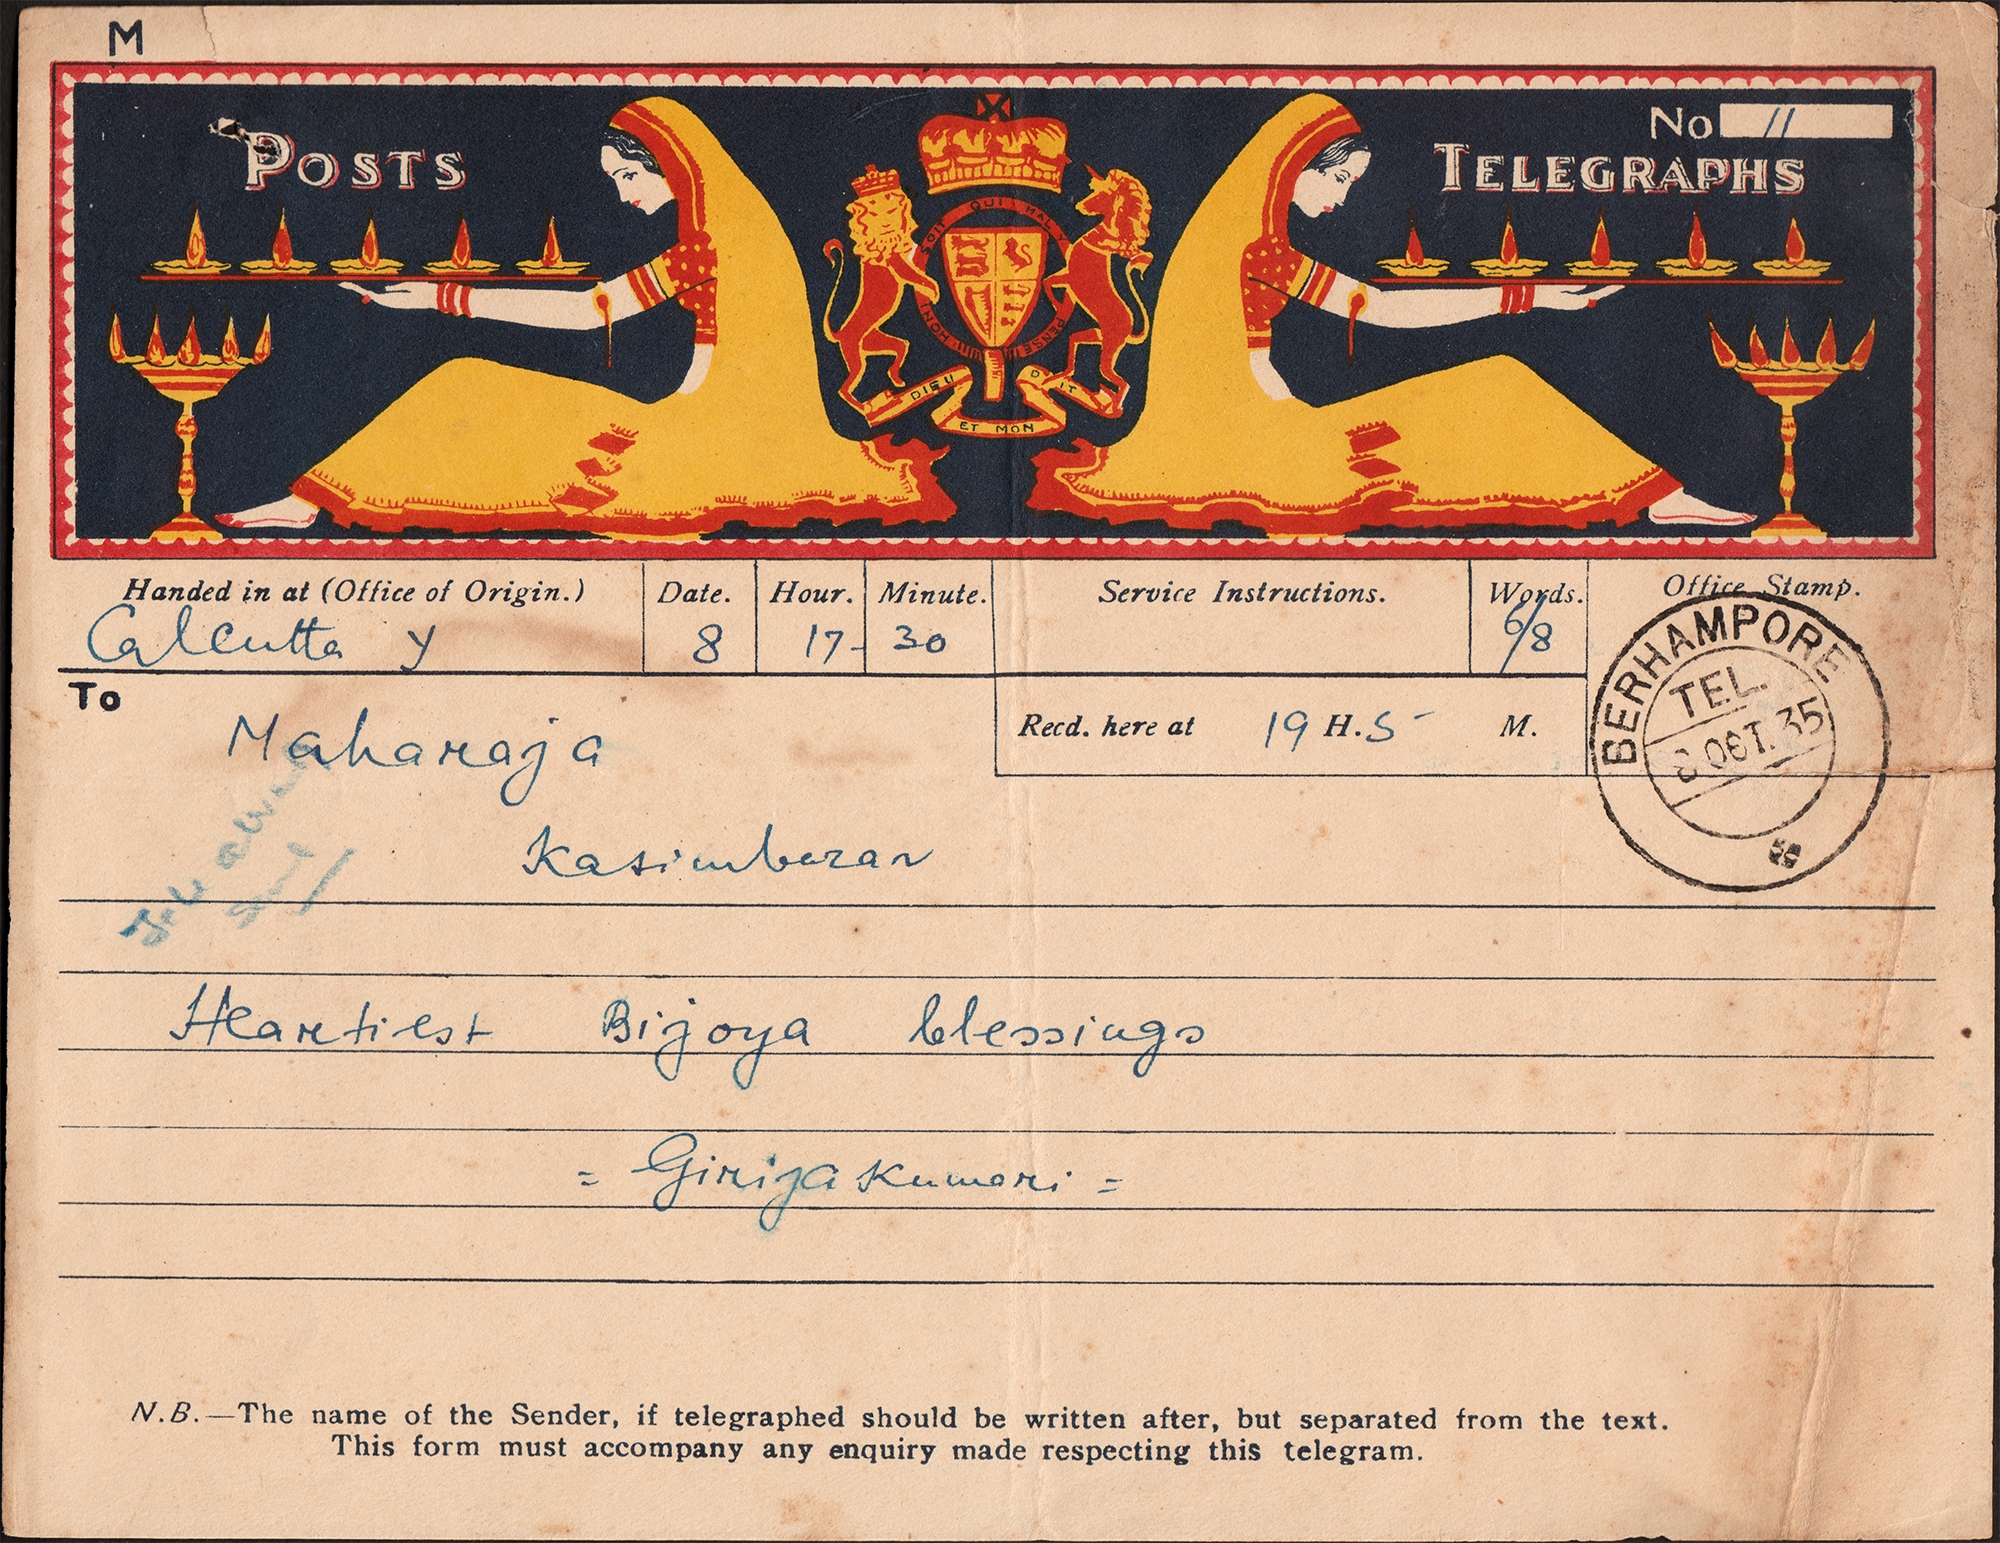 M
No 11
POSTS
TELEGRAPHS
HONI SOIT QUI MAL Y PENSE
DIEU ET MON DROIT
Handed in at (Office of Origin.) Date. Hour. Minute. Service Instructions. Words. Office Stamp.
Calcutta y 8 17- 30 6/8
To
Recd. here at 19 H. 5 - M.
BERHAMPORE
TEL.
8 OCT. 35
Maharaja
Kasimbazar
Heartiest Bijoya blessings
= Girija Kumari =
N.B.—The name of the Sender, if telegraphed should be written after, but separated from the text.
This form must accompany any enquiry made respecting this telegram.